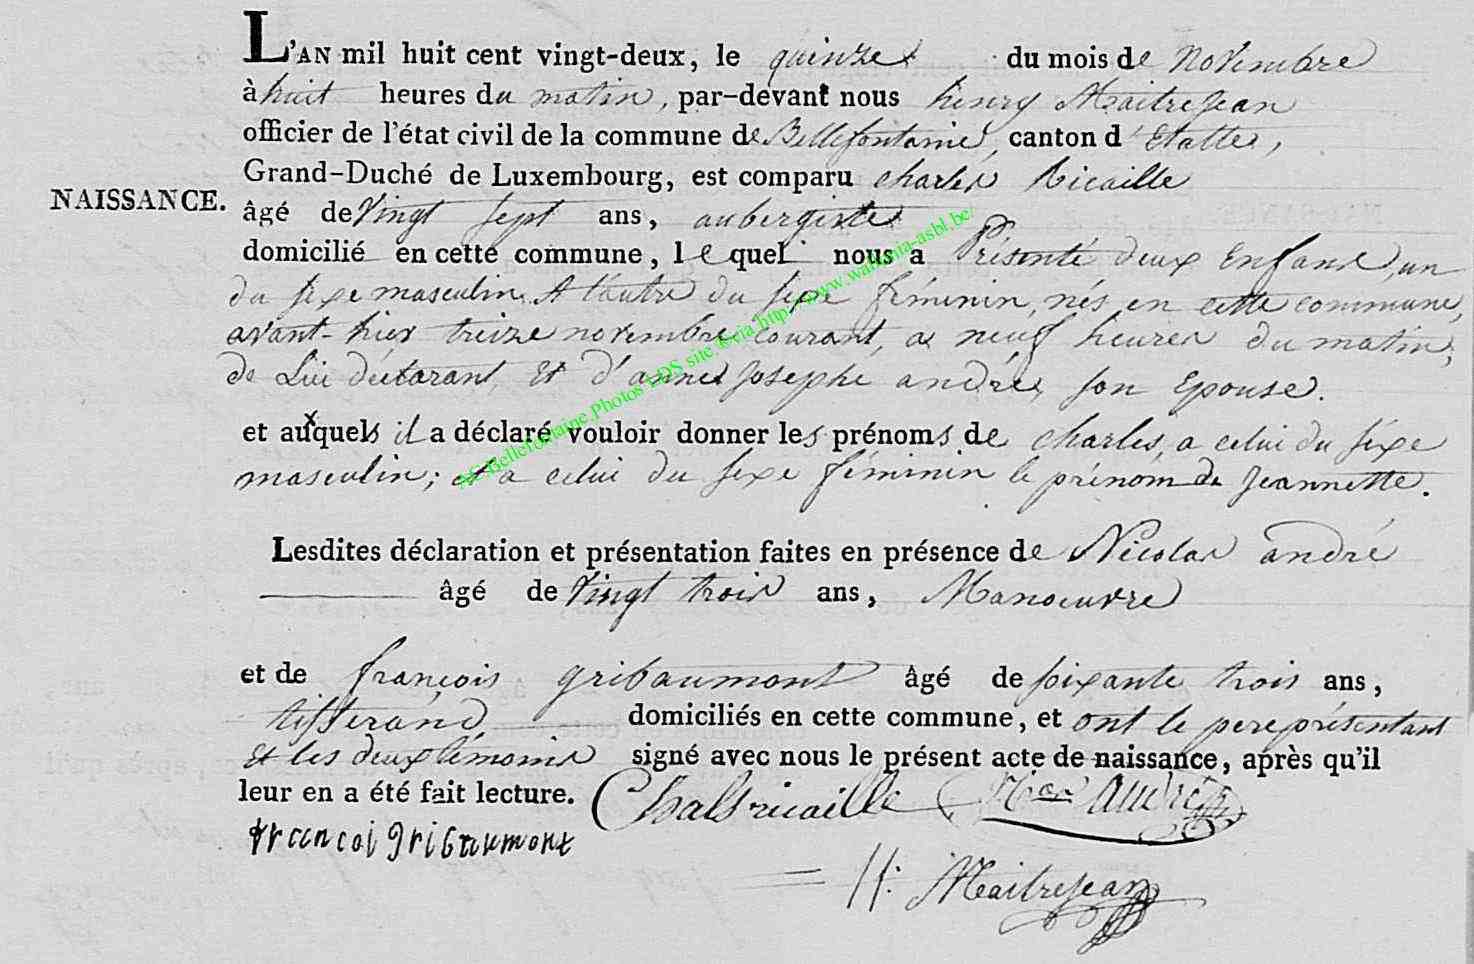 L'AN mil huit cent vingt-deux, le quinze du mois de Novembre
à huit heures du matin, par-devant nous henry Maitrejean
officier de l'état civil de la commune de Bellefontaine, canton d'Etalle,
Grand-Duché de Luxembourg, est comparu charles Ricaille
NAISSANCE.
âgé de Vingt sept ans, aubergiste
domicilié en cette commune, lequel nous a Présenté deux Enfans, un
du sexe masculin, & l'autre du sexe féminin, nés en cette commune,
avant-hier treize novembre courant, a neuf heures du matin,
de Lui déclarant, et d'anne josephe andré, son Epouse.
et auxquels il a déclaré vouloir donner les prénoms de charles, a celui du sexe
masculin; et a celui du sexe féminin le prénom de Jeannette.
Lesdites déclaration et présentation faites en présence de Nicolas andré
âgé de Vingt trois ans, Manoeuvre
et de françois gribaumont âgé de soixante trois ans,
tisserand domiciliés en cette commune, et ont le pere présentant
et les deux témoins signé avec nous le présent acte de naissance, après qu'il
leur en a été fait lecture. Chals ricaille Nicas André
francoi gribaumont
H: Maitrejean
AC Bellefontaine Photos LDS site Is via http://www.wallonia-asbl.be/